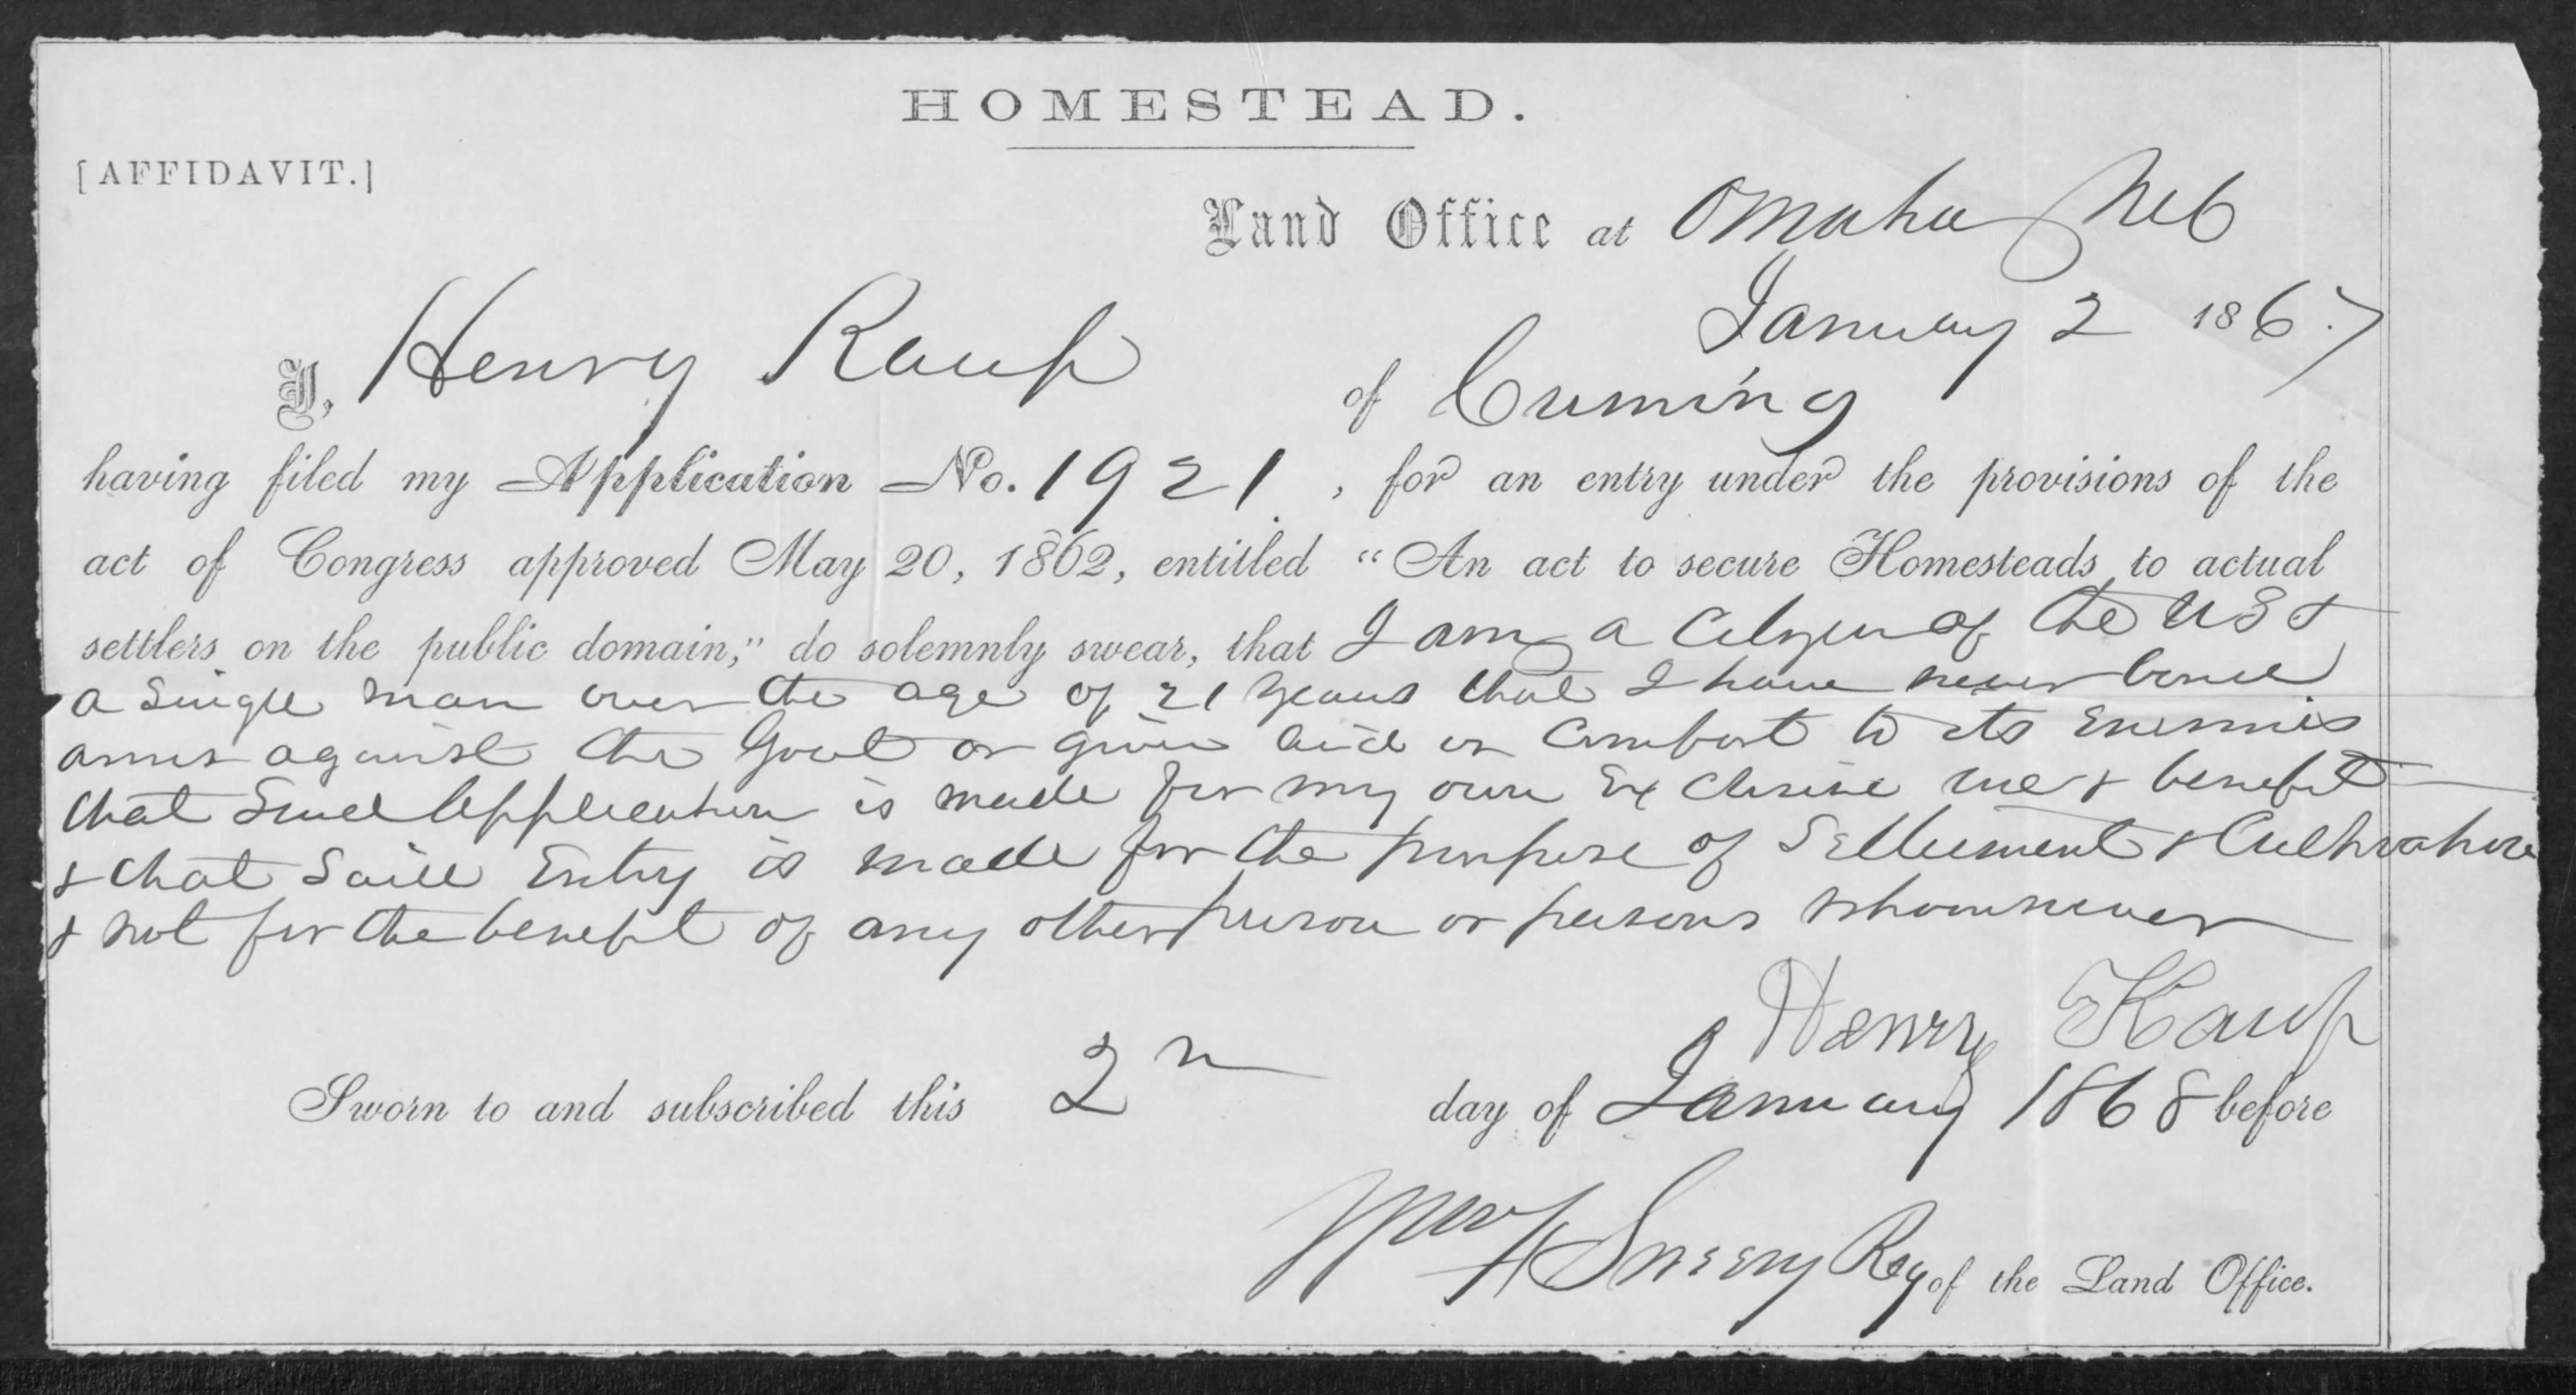 HOMESTEAD.
[AFFIDAVIT.]
Land Office at Omaha Neb
January 2 1867
I, Henry Raup of Cuming
having filed my Application No. 1921, for an entry under the provisions of the
act of Congress approved May 20, 1862, entitled "An act to secure Homesteads to actual
settlers on the public domain," do solemnly swear, that I am a Citizen of the US &
a Single man over the age of 21 years that I have never borne
arms against the Govt or given aid or Comfort to its Enemies
that Said Application is made for my own Exclusive use & benefit
& that Said Entry is made for the purpose of Settlement & Cultivation
& not for the benefit of any other person or persons whomsoever
Henry Kaup
Sworn to and subscribed this 2n day of January 1868 before
Wm H Sneery Reg of the Land Office.